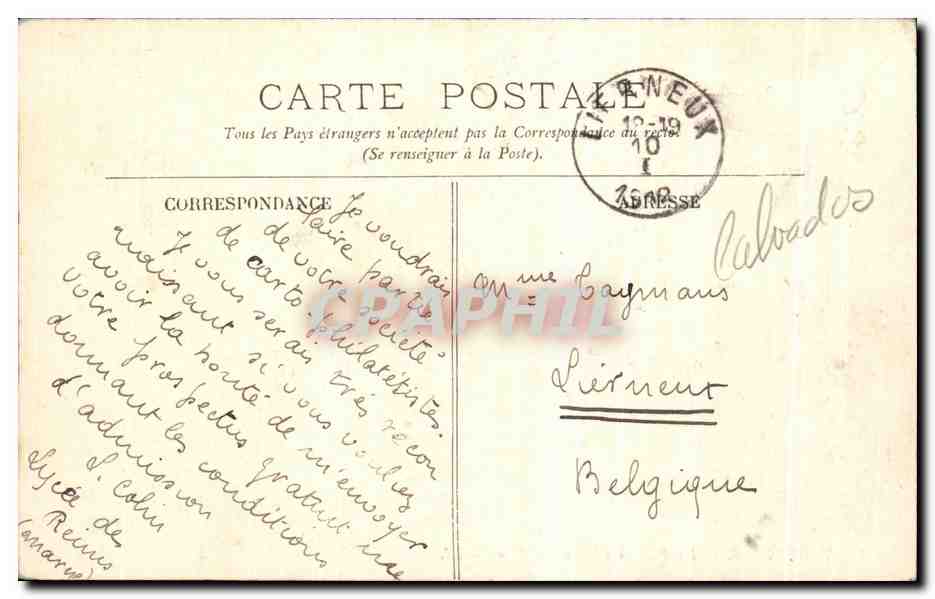 CARTE POSTALE
Tous les Pays étrangers n'acceptent pas la Correspondance au recto.
(Se renseigner à la Poste).
LIERNEUX
18-19
10
I
CORRESPONDANCE
ADRESSE
Calvados
Je voudrais
faire partie
de votre société
de carto philatélistes.
Je vous serais très recon
naissant si vous vouliez
avoir la bonté de m'envoyer
votre prospectus gratuit me
donnant les conditions
d'admission
L. Colin
Lycée de
Reims
(Marne)
Mme Taymans
Lierneux
Belgique
CPAPHIL